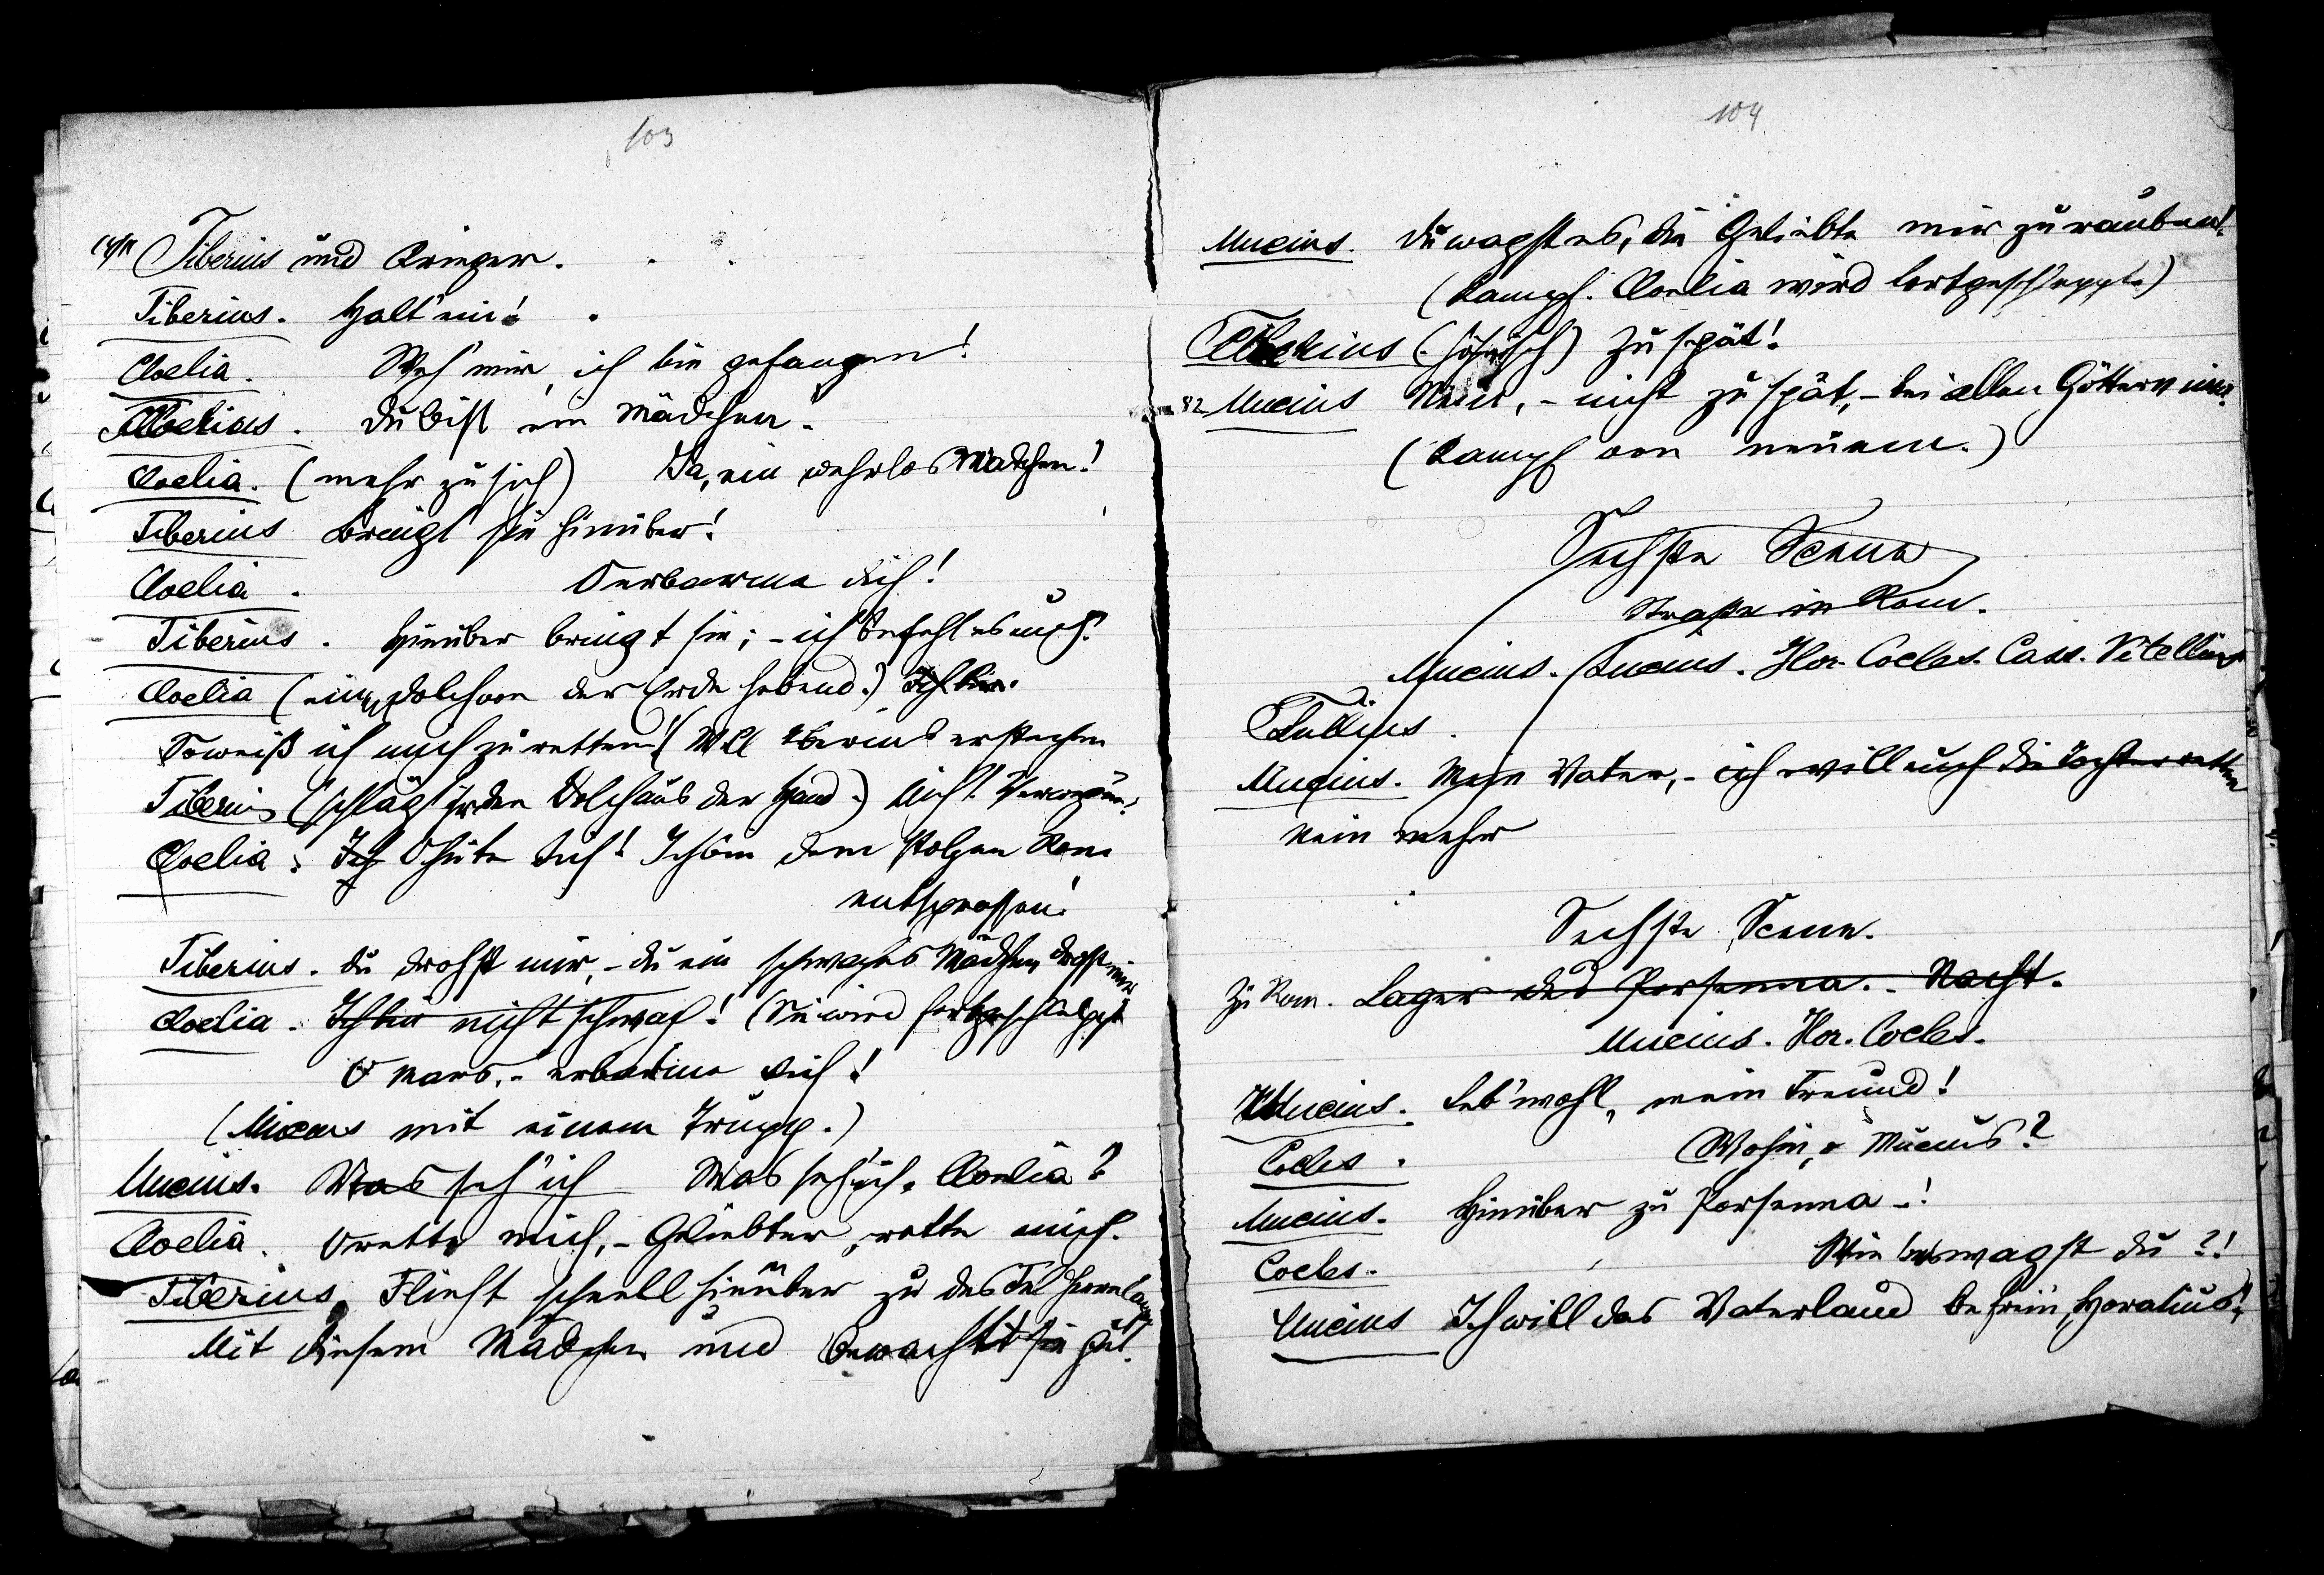 103
Tiberius und Krieger.
Tiberius. Halt' ein!
Cloelia. Weh' mir, ich bin gefangen!
Tiberius. Du bist ein Mädchen.
Cloelia. (mehr zu sich) Ja, ein wehrlos Mädchen!
Tiberius Bringt sie hinüber!
Cloelia. O erbarme dich!
Tiberius. Hinüber bringt sie; - ich befehl es euch!
Cloelia (einen Dolch von der Erde hebend.) Ich bin.
So weiß ich mich zu retten! (Will Tiberius erstechen
Tiberius (schlägt ihr den Dolch aus der Hand.) Nicht
Cloelia: Ich O hüte dich! Ich bin dem stolzen Rom
entsprossen!
Tiberius. Du drohst mir, - du ein schwaches Mädchen drohst mir
Cloelia. Ich bin nicht schwach! (Sie wird fortgeschleppt
O Mars, - erbarme dich!
(Mucius mit einem Trupp.)
Mucius. Was seh' ich Was seh' ich. Cloelia?
Cloelia. O rette mich, - Geliebter, rette mich.
Tiberius Flieht schnell hinüber zu des Feldherrn
Mit diesem Mädchen und bewacht sie gut.
104
Mucius. Du wagst es, die Geliebte mir zu rauben!
(Kampf. Cloelia wird fortgeschleppt.)
Tiberius (höhnisch) Zu spät!
Mucius Nein, - nicht zu spät, - bei allen Göttern
(Kampf von neuem.)
Sechste Scene
Straße in Rom.
Mucius. Hor. Cocles. Cass. Vitellius
Tullius.
Mucius. Mein Vater, - ich will euch die Tochter retten
Nein mehr
Sechste Scene.
Zu Rom. Lager des Porsenna. - Nacht.
Mucius. Hor. Cocles.
Mucius. Leb' wohl, mein Freund!
Cocles. Wohin, o Mucius?
Mucius. Hinüber zu Porsenna -!
Cocles. Wie wagst du?!
Mucius Ich will das Vaterland befrein, Horatius!